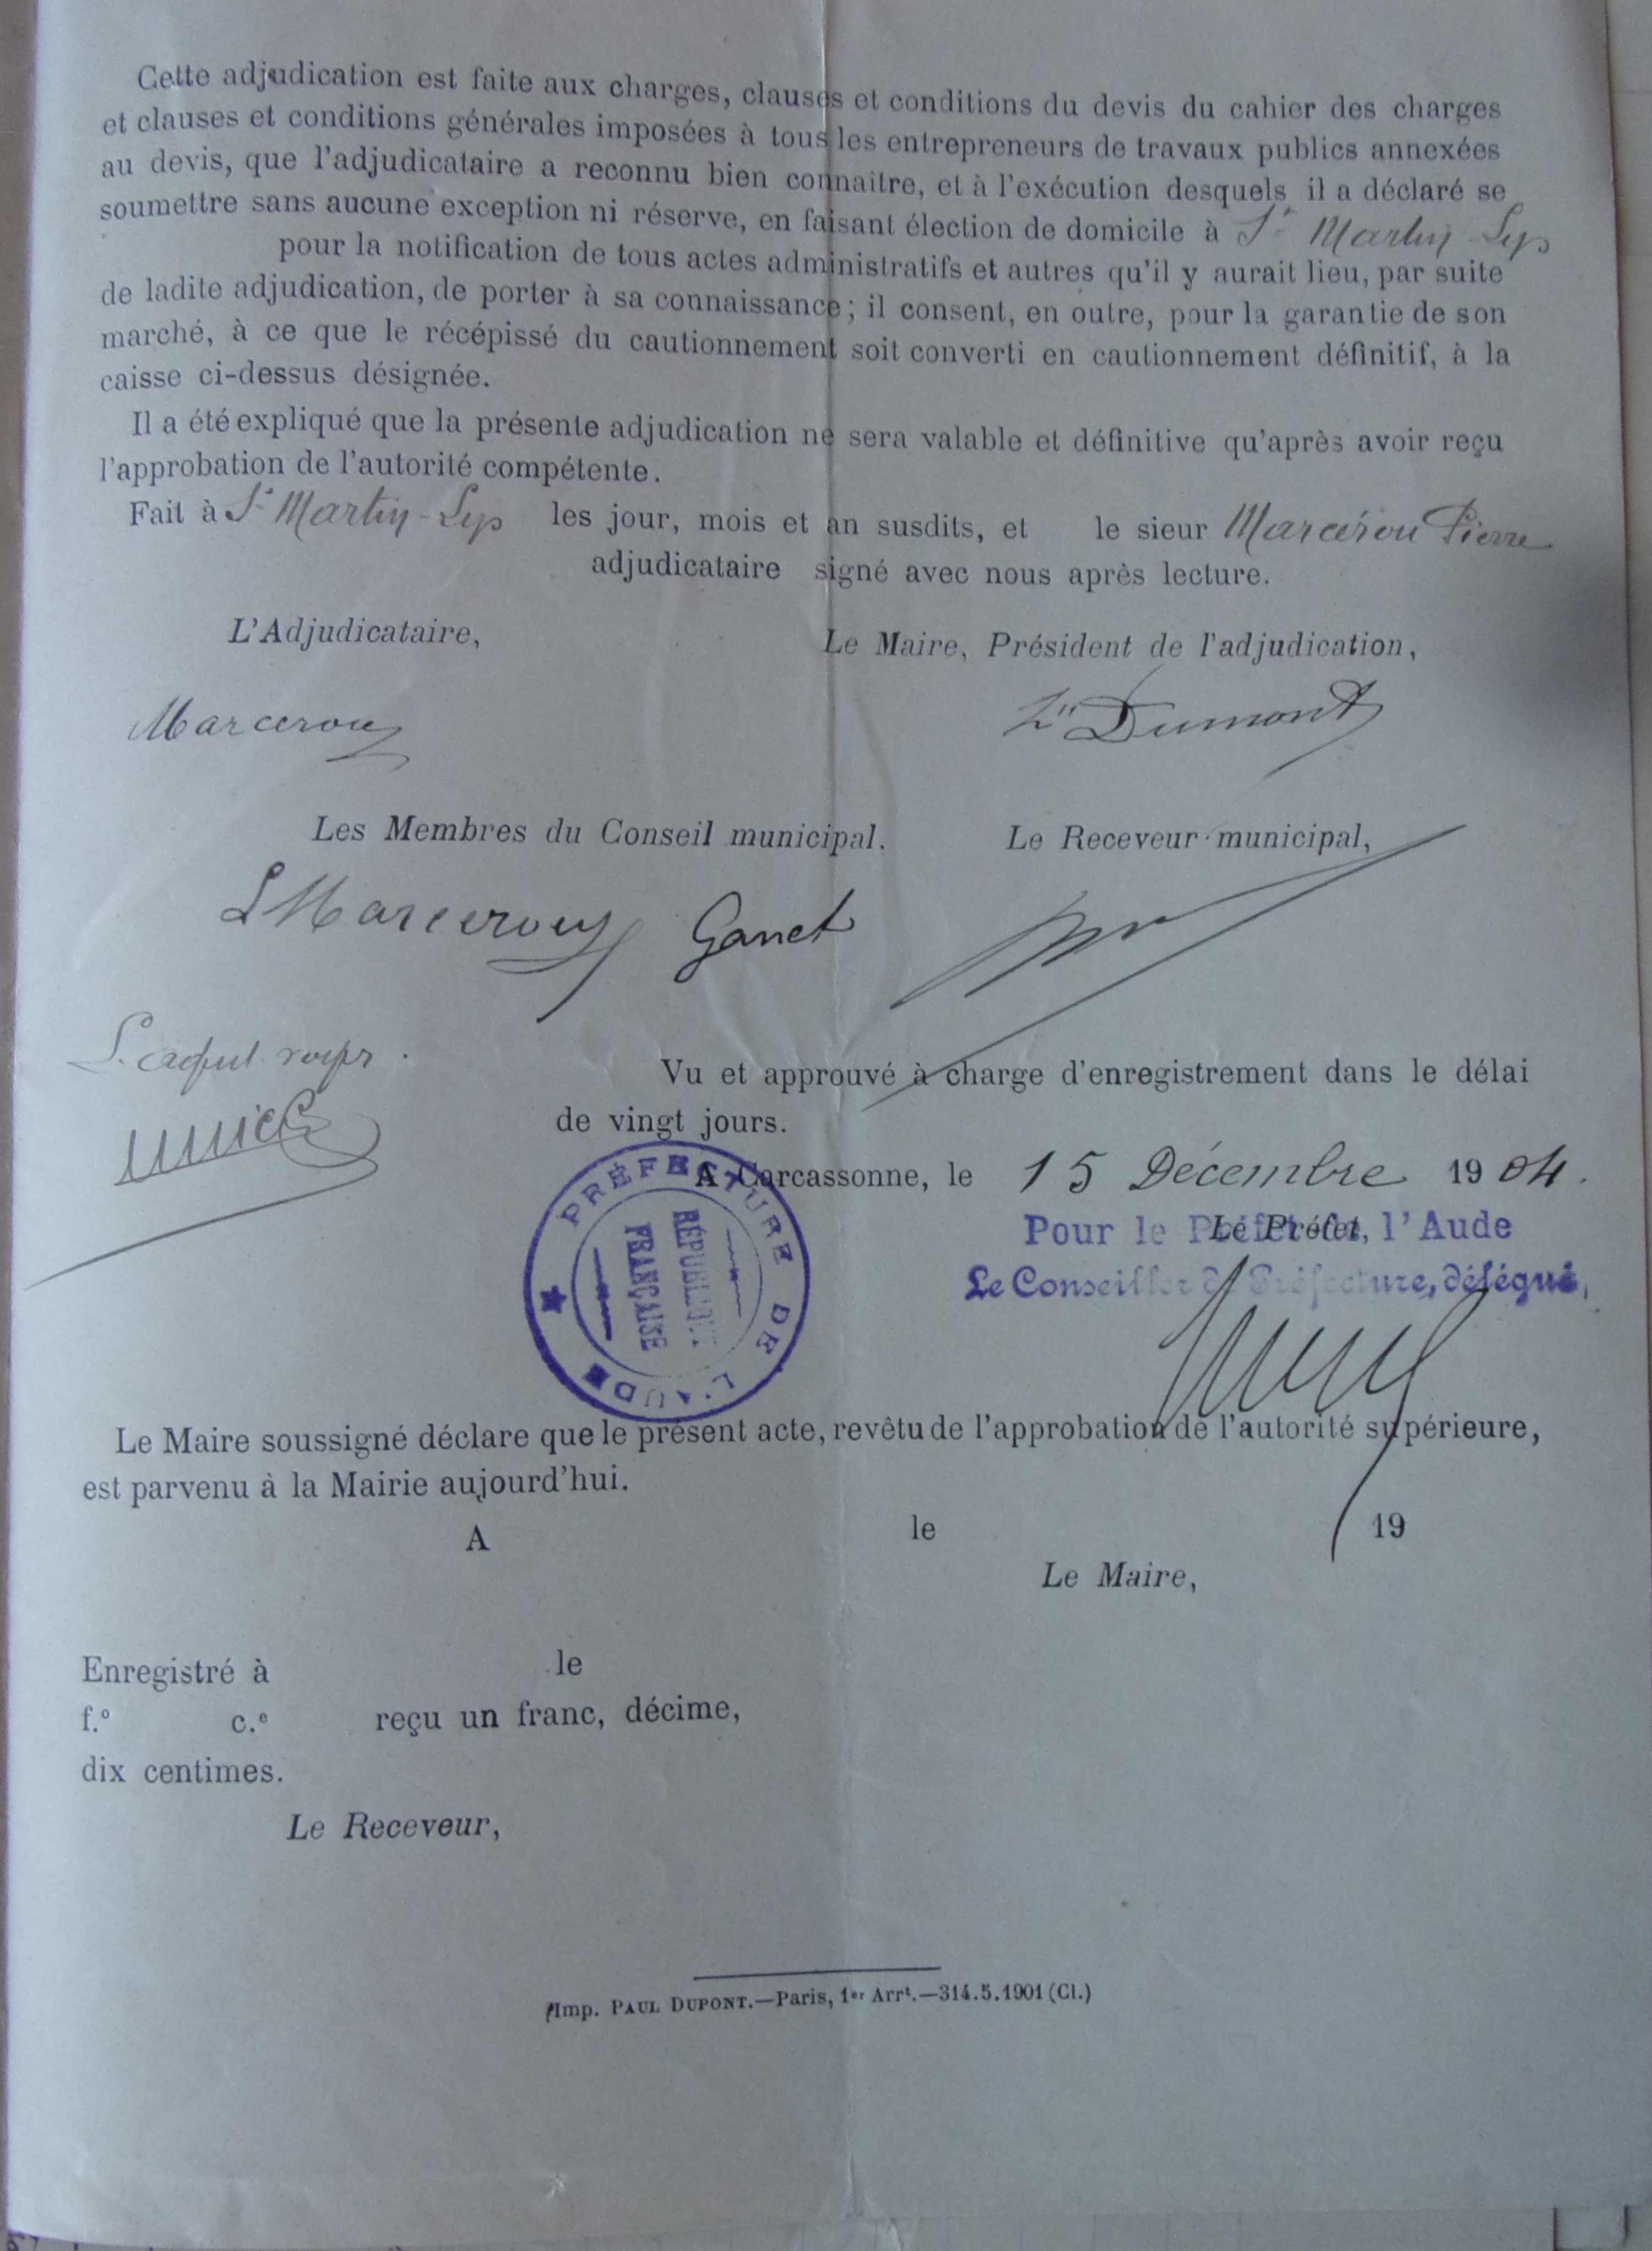 Cette adjudication est faite aux charges, clauses et conditions du devis du cahier des charges
et clauses et conditions générales imposées à tous les entrepreneurs de travaux publics annexées
au devis, que l'adjudicataire a reconnu bien connaître, et à l'exécution desquels il a déclaré se
soumettre sans aucune exception ni réserve, en faisant élection de domicile à St Martin-Lys
pour la notification de tous actes administratifs et autres qu'il y aurait lieu, par suite
de ladite adjudication, de porter à sa connaissance; il consent, en outre, pour la garantie de son
marché, à ce que le récépissé du cautionnement soit converti en cautionnement définitif, à la
caisse ci-dessus désignée.
Il a été expliqué que la présente adjudication ne sera valable et définitive qu'après avoir reçu
l'approbation de l'autorité compétente.
Fait à St Martin-Lys les jour, mois et an susdits, et le sieur Marcérou Pierre
adjudicataire signé avec nous après lecture.
L'Adjudicataire,
Le Maire, Président de l'adjudication,
Marcerou
Dumont
Les Membres du Conseil municipal.
Le Receveur municipal,
L Marcerou Ganet
Vu et approuvé à charge d'enregistrement dans le délai
de vingt jours.
A Carcassonne, le 15 Décembre 1904.
Le Préfet,
Pour le Préfet de l'Aude
Le Conseiller de Préfecture, délégué,
PRÉFECTURE DE L'AUDE
RÉPUBLIQUE
FRANÇAISE
Le Maire soussigné déclare que le présent acte, revêtu de l'approbation de l'autorité supérieure,
est parvenu à la Mairie aujourd'hui.
A le 19
Le Maire,
Enregistré à le
f.º c.e reçu un franc, décime,
dix centimes.
Le Receveur,
Imp. PAUL DUPONT.—Paris, 1er Arrt.—314.5.1901 (Cl.)